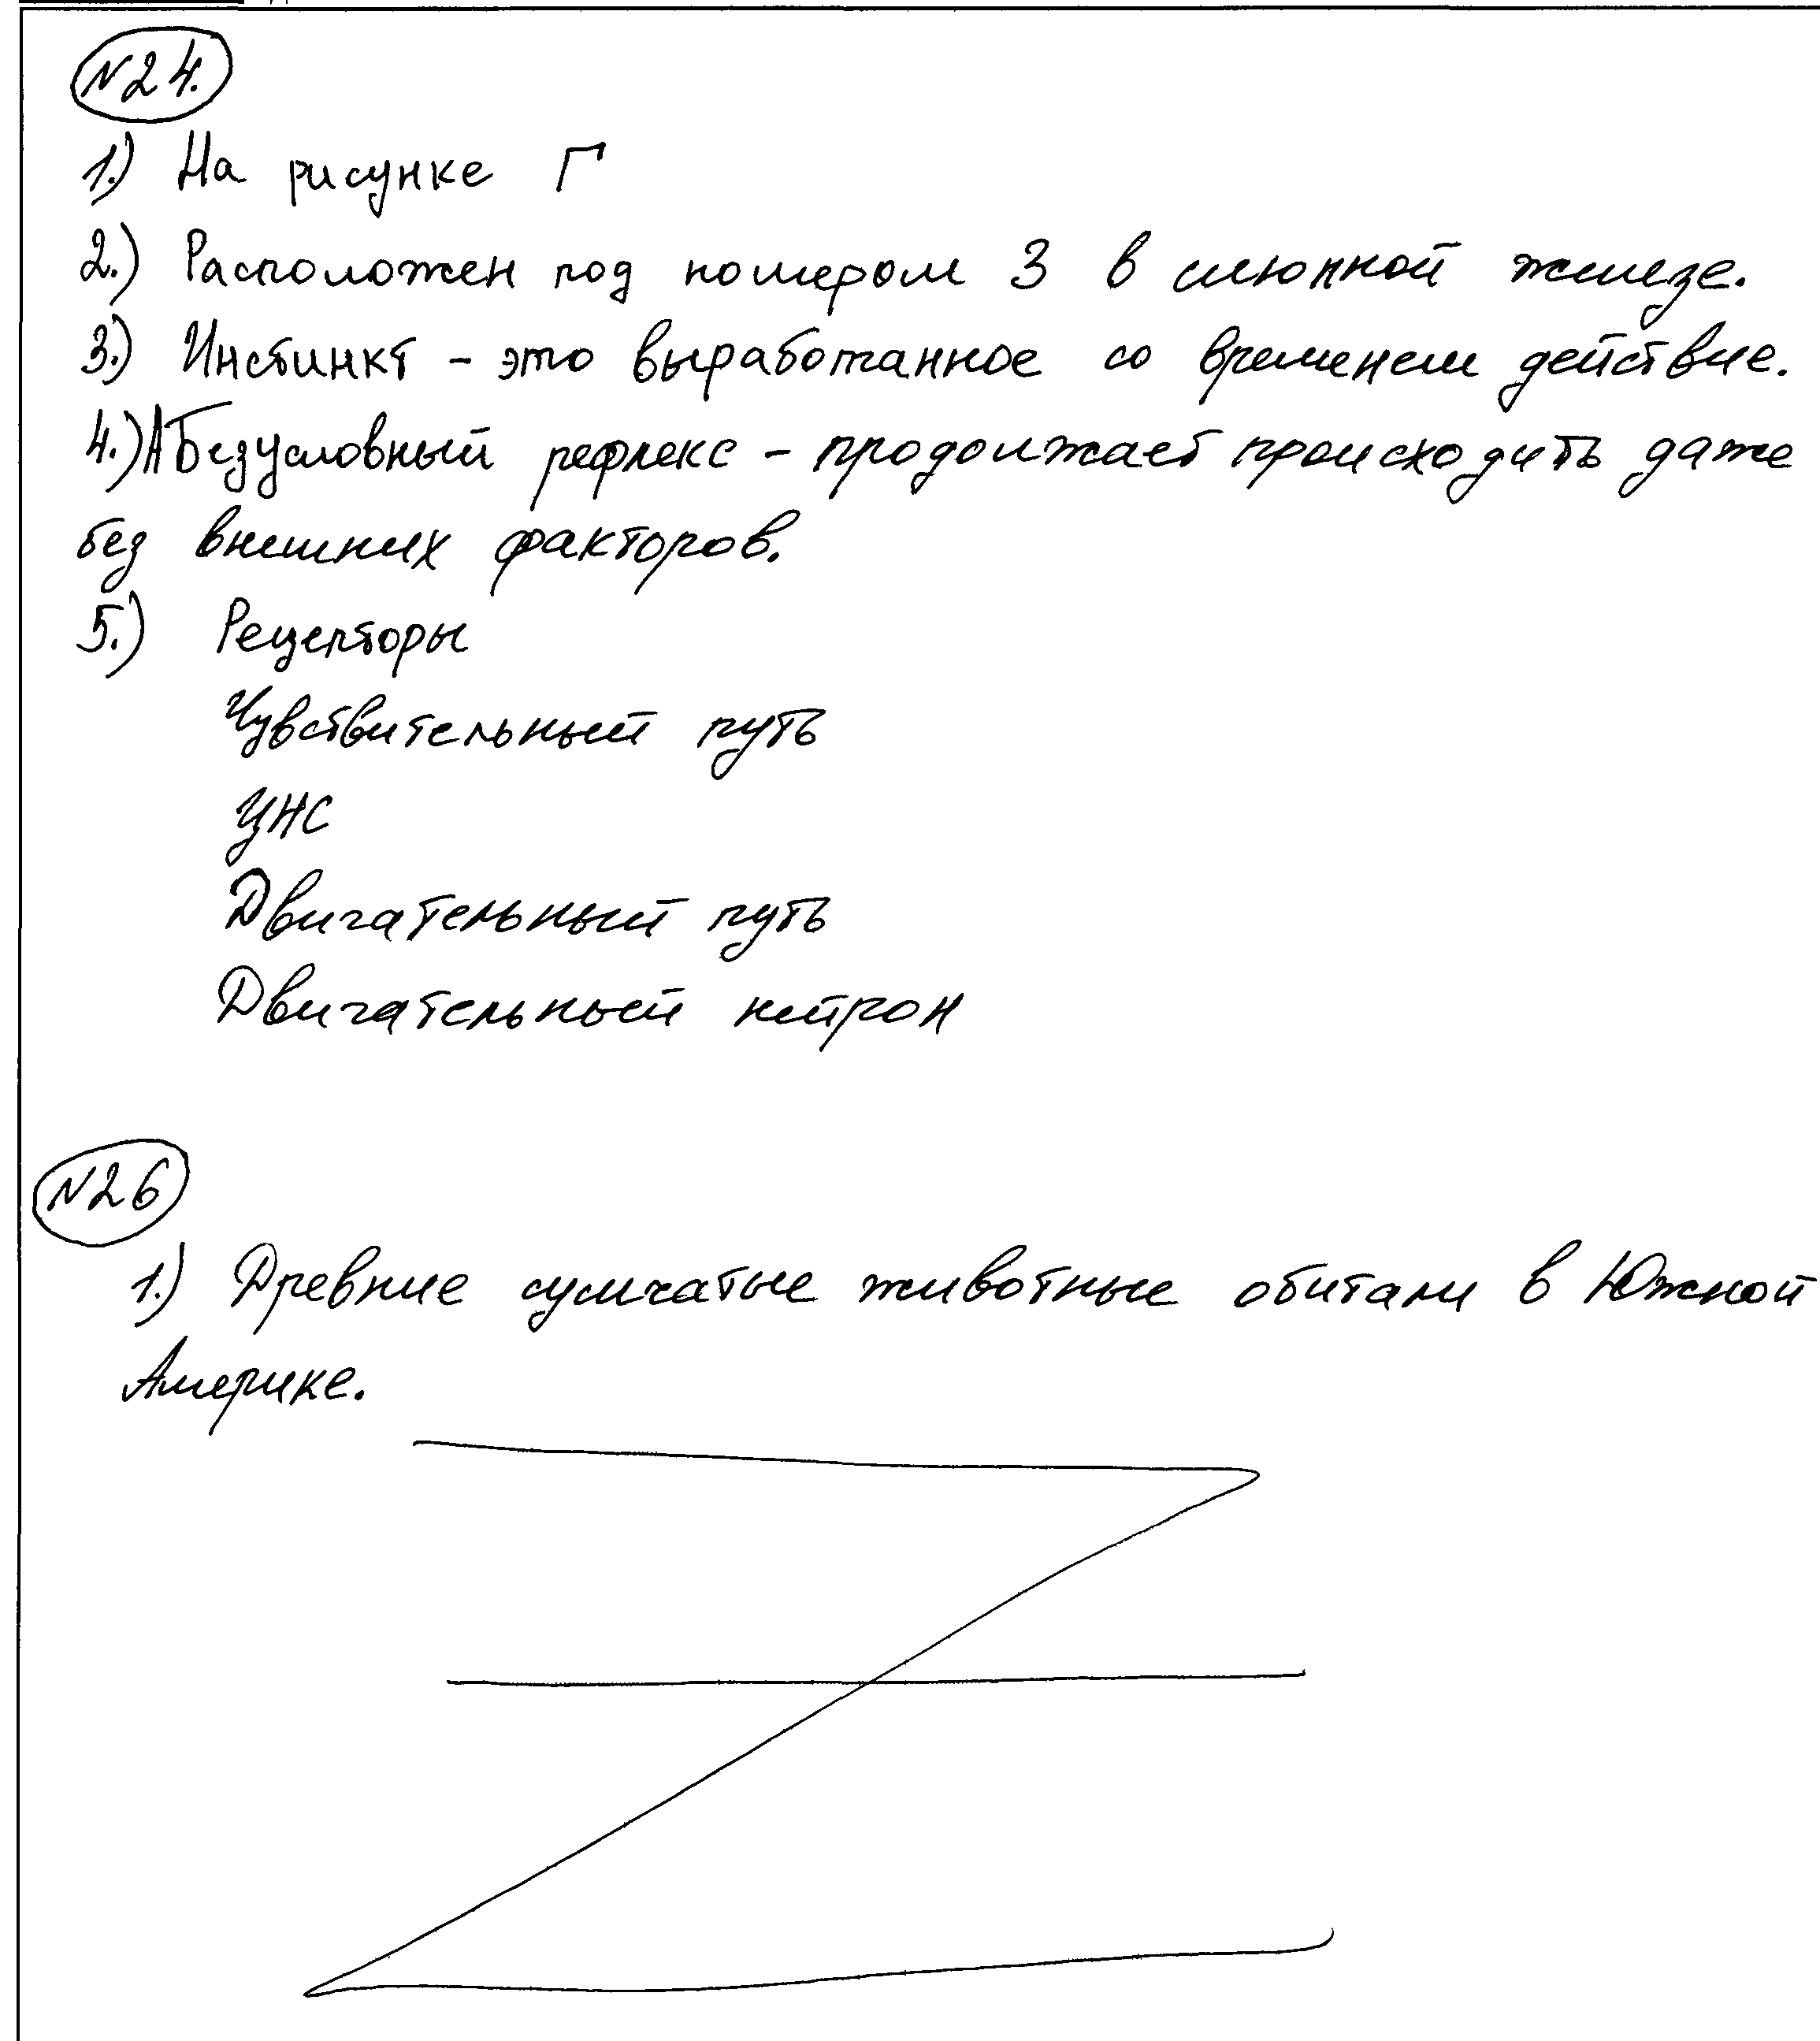 N24.
1.) На рисунке Г
2.) Расположен под номером 3 в слюнной железе.
3.) Инстинкт - это выработанное со временем действие.
4.) Безусловный рефлекс - продолжает происходить даже
без внешних факторов.
5.) Рецепторы
Чувствительный путь
ЦНС
Двигательный путь
Двигательный нейрон
N26
1.) Древние сумчатые животные обитали в Южной
Америке.